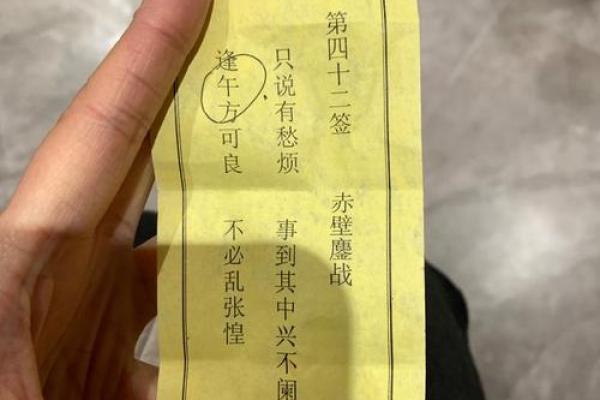 第四十二签 赤壁鏖战
只说有愁烦 事到其中兴不阑
逢午方可良 不必乱张惶